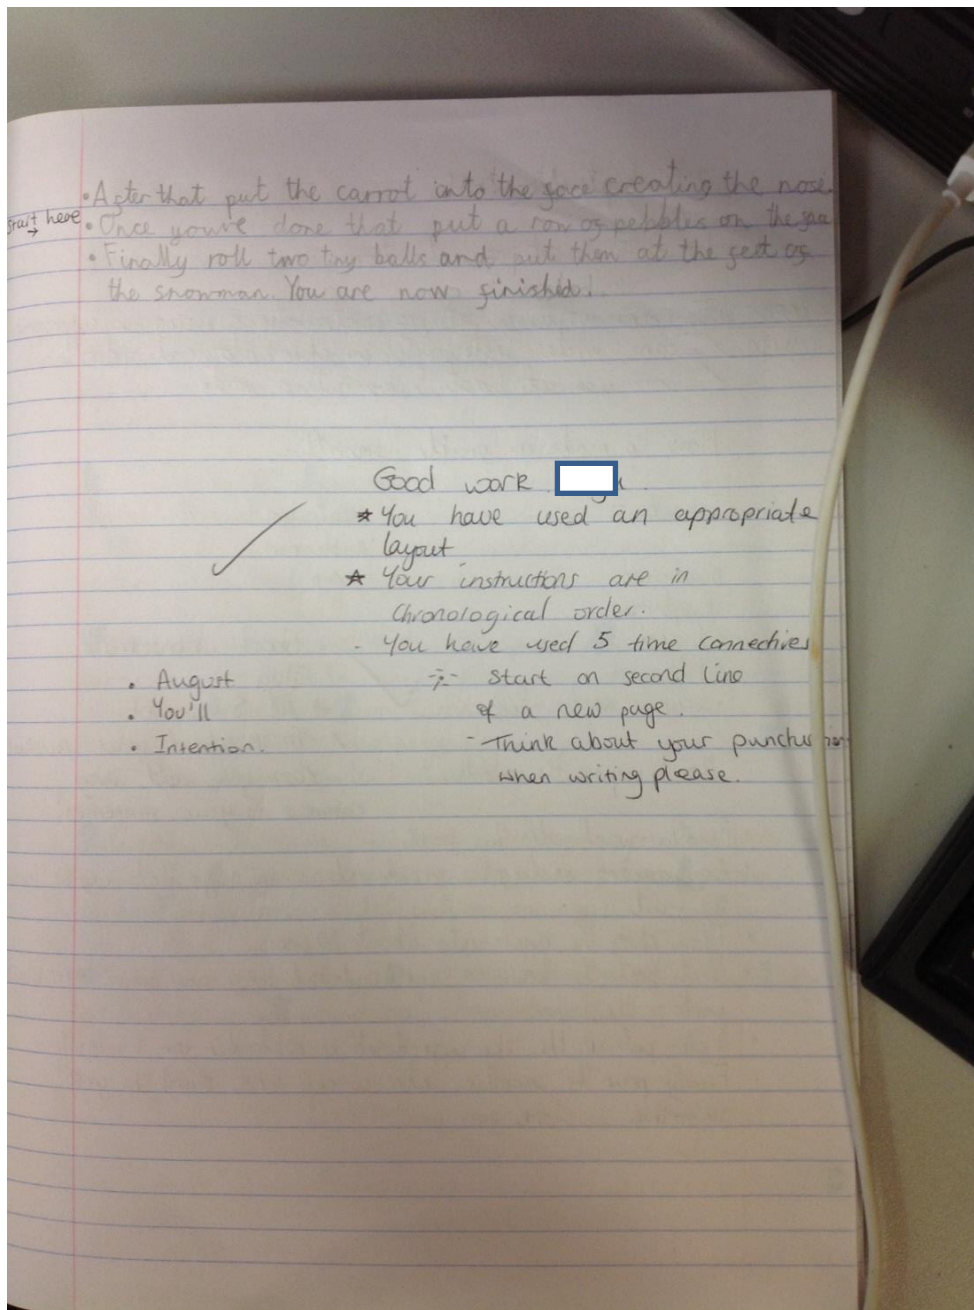 • After that put the carrot into the face creating the nose.
start here
→
• Once you're done that put a row of pebbles on the face
• Finally roll two tiny balls and put them at the feet of
the snowman. You are now finished!
Good work
* You have used an appropriate
layout
* Your instructions are in
Chronological order.
- You have used 5 time connectives
• August
÷ start on second line
• You'll
of a new page.
• Intention.
- Think about your
when writing please.